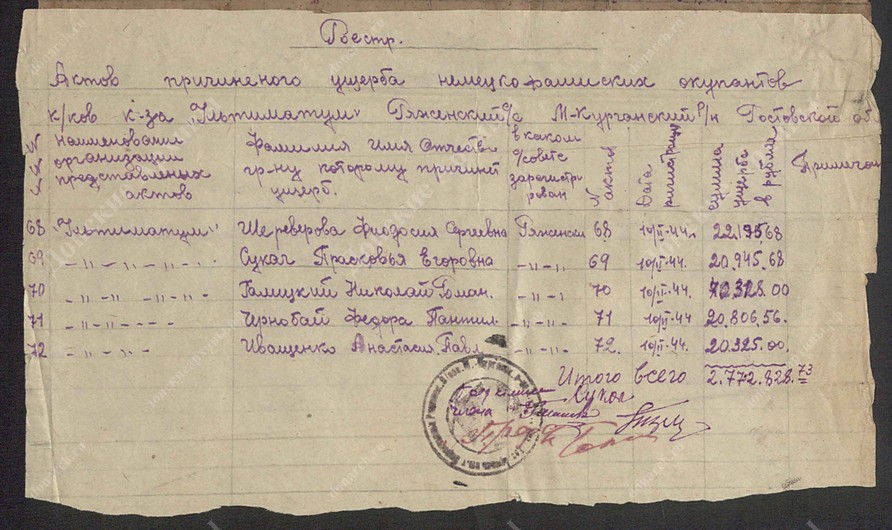 Реестр.
Актов причиненого ущерба немецко-фашиских окупантов
к/ков к-за „Ультиматум" Ряженский с/с М-Курганский р/н Ростовской об.
№ Наименования организации представленых актов Фамилия Имя Отчеств гр-ну которому причинет ущерб. в каком с/совете зарегистрирован № актов Дата регистрации сумма ущерба в рублях Примечан
68 „Ультиматум" Феодосия Сергеевна Ряженски 68 10/II-44. 22.195,68
69 -"- "- "- Сукач Прасковья Егоровна -"-"- 69 10/II-44. 20.945.68
70 -"- -"-"- Галицкий Николай Роман. -"-"- 70 10/II-44. 00
71 -"-"- - - Чрнобай Федора Пантил. -"-"- 71 10/II-44 20.806,56.
72 -"-"-"- Иващенко Анастасия Павл -"-"- 72. 10/II-44. 20.325.00.
Итого всего 2.772.828.73
Сукач
члена